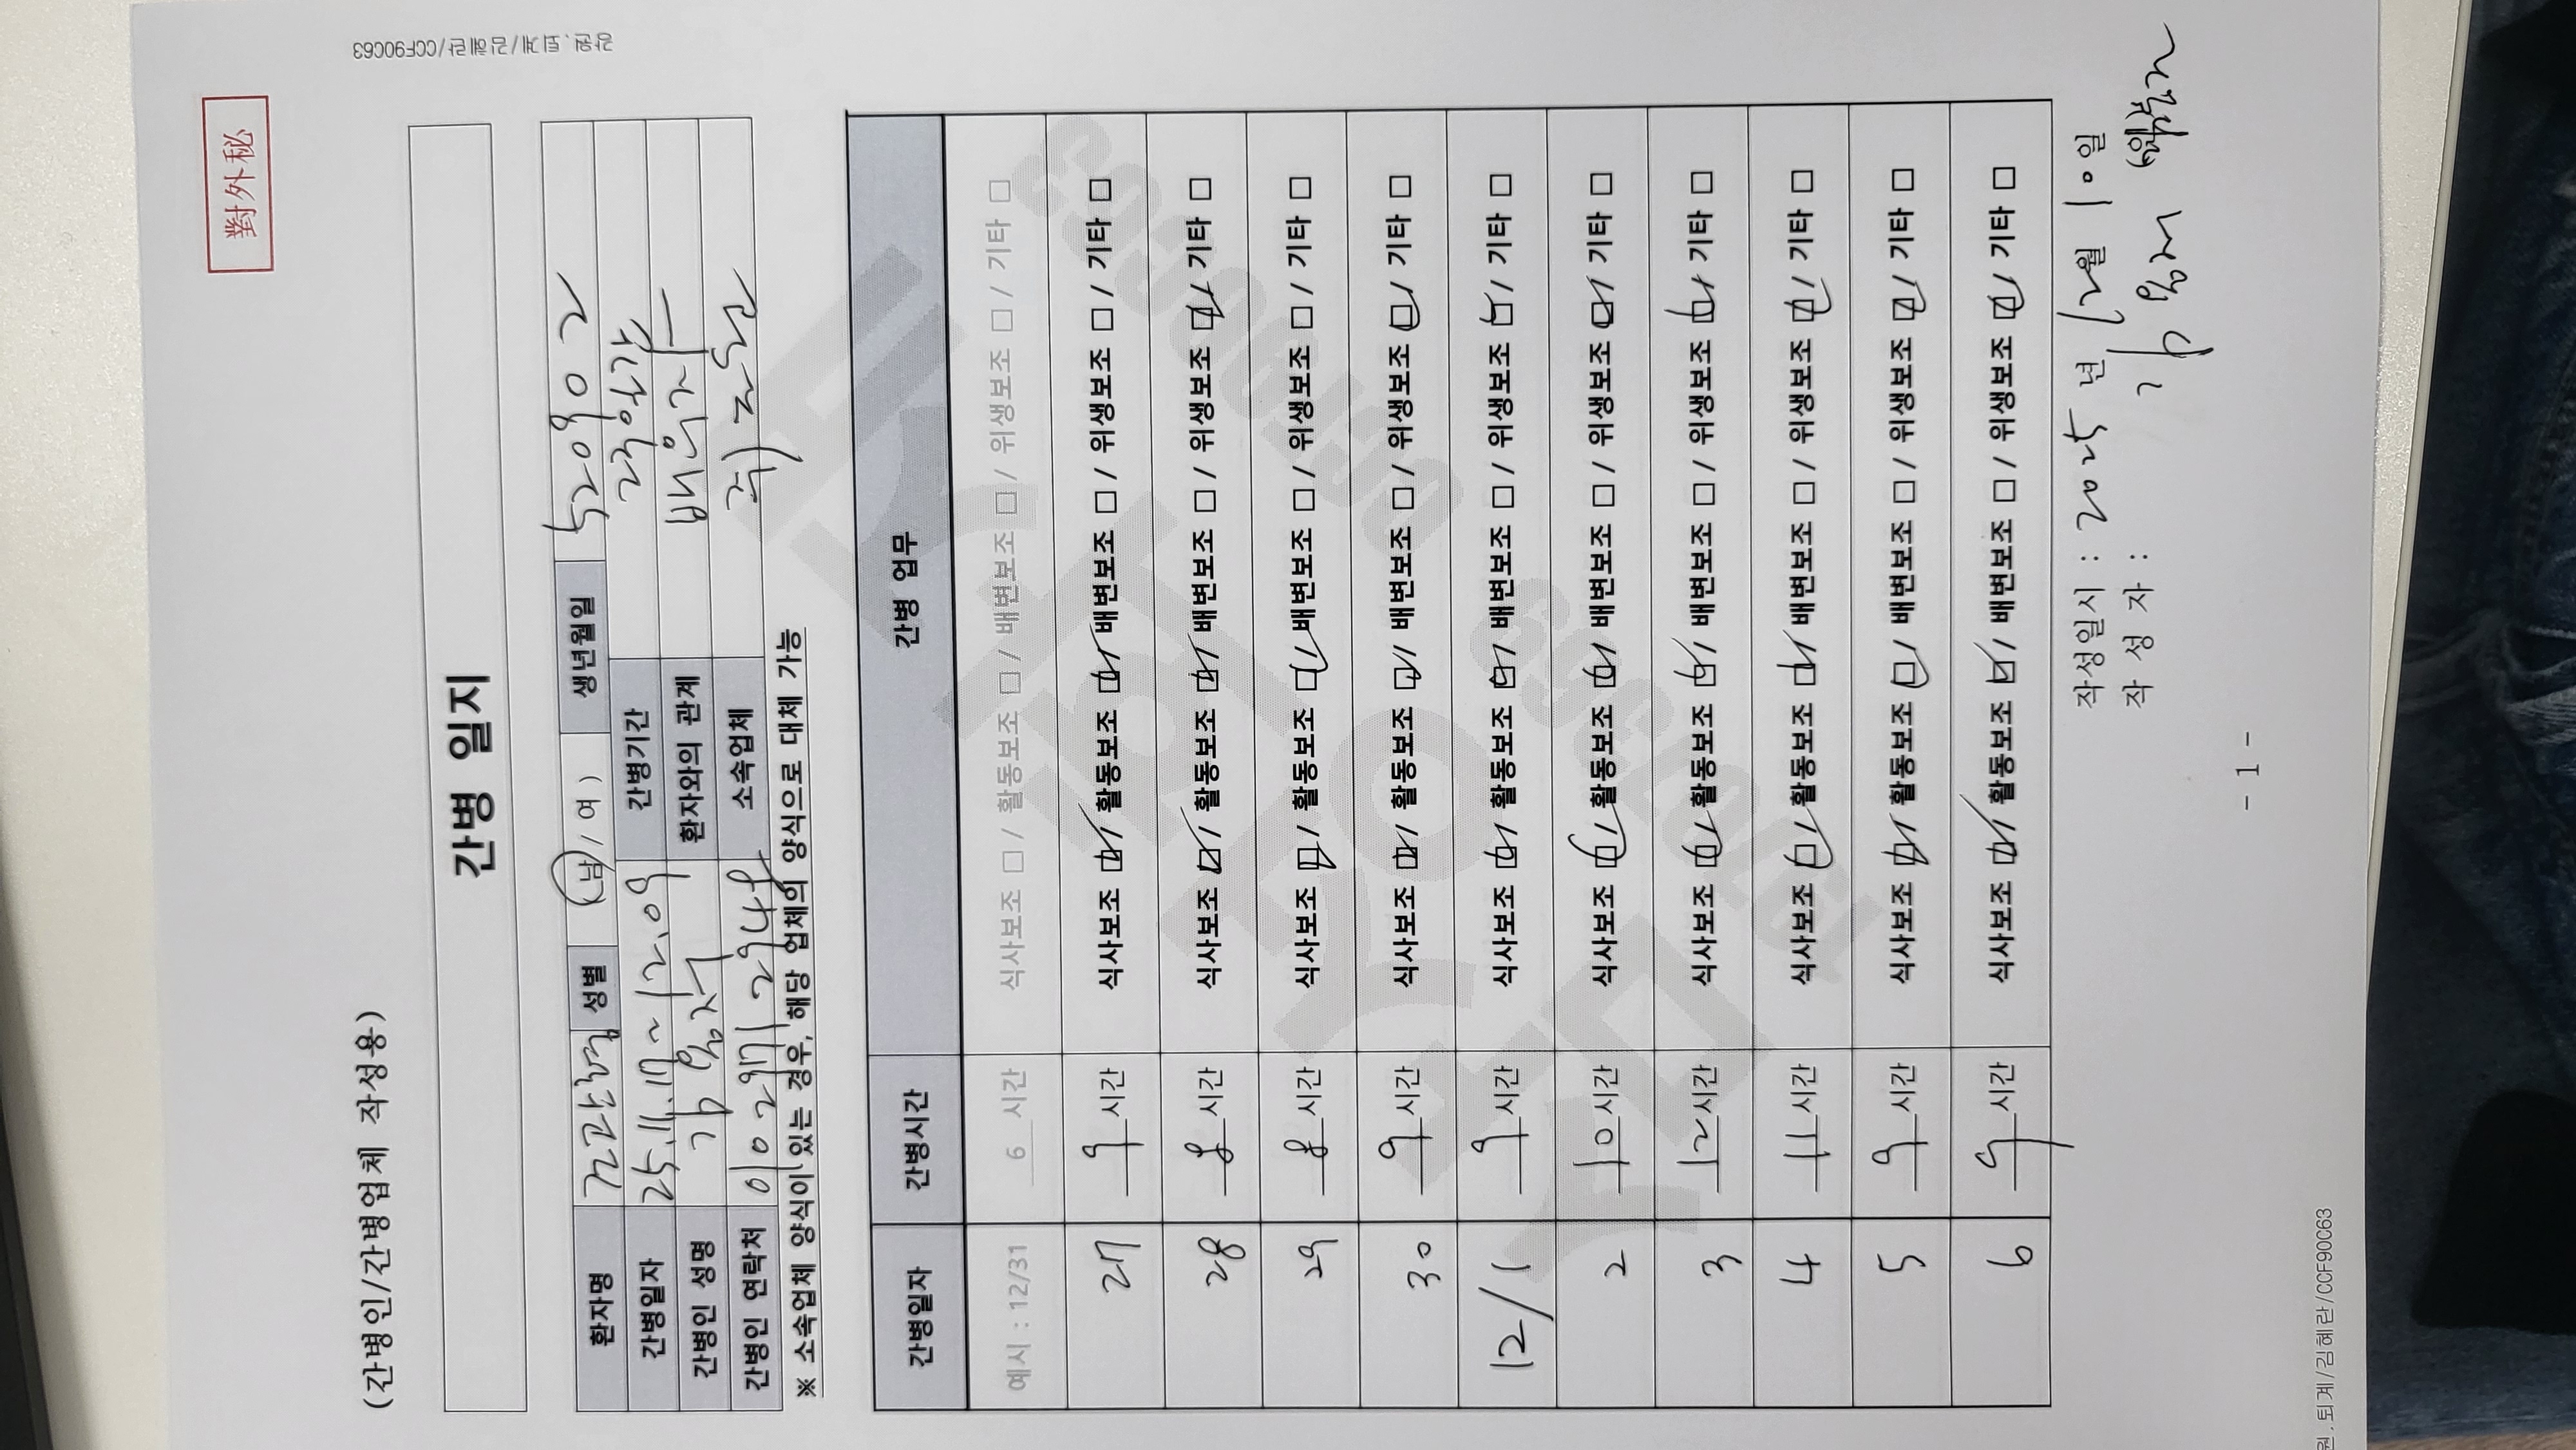 강원.퇴계/김혜란/CCF90C63
對外秘
(간병인/간병업체 작성용)
간병 일지
환자명 성별 (남/여) 생년월일
간병일자 25.11.17~12.08 간병기간
간병인 성명 환자와의 관계 배우자
간병인 연락처 소속업체
※ 소속업체 양식이 있는 경우, 해당 업체의 양식으로 대체 가능
간병일자 간병시간 간병 업무
예시 : 12/31 6 시간 식사보조 □ / 활동보조 □ / 배변보조 □ / 위생보조 □ / 기타 □
27 9 시간 식사보조 ☑ / 활동보조 ☑ / 배변보조 □ / 위생보조 □ / 기타 □
28 8 시간 식사보조 ☑ / 활동보조 ☑ / 배변보조 □ / 위생보조 ☑ / 기타 □
29 8 시간 식사보조 ☑ / 활동보조 ☑ / 배변보조 □ / 위생보조 □ / 기타 □
30 9 시간 식사보조 ☑ / 활동보조 ☑ / 배변보조 □ / 위생보조 ☑ / 기타 □
12/1 9 시간 식사보조 ☑ / 활동보조 ☑ / 배변보조 □ / 위생보조 ☑ / 기타 □
2 10 시간 식사보조 ☑ / 활동보조 ☑ / 배변보조 □ / 위생보조 ☑ / 기타 □
3 12 시간 식사보조 ☑ / 활동보조 ☑ / 배변보조 □ / 위생보조 ☑ / 기타 □
4 11 시간 식사보조 ☑ / 활동보조 ☑ / 배변보조 □ / 위생보조 ☑ / 기타 □
5 9 시간 식사보조 ☑ / 활동보조 ☑ / 배변보조 □ / 위생보조 ☑ / 기타 □
6 9 시간 식사보조 ☑ / 활동보조 ☑ / 배변보조 □ / 위생보조 ☑ / 기타 □
작성일시 : 2025 년 12월 10일
작 성 자 :
- 1 -
원.퇴계/김혜란/CCF90C63